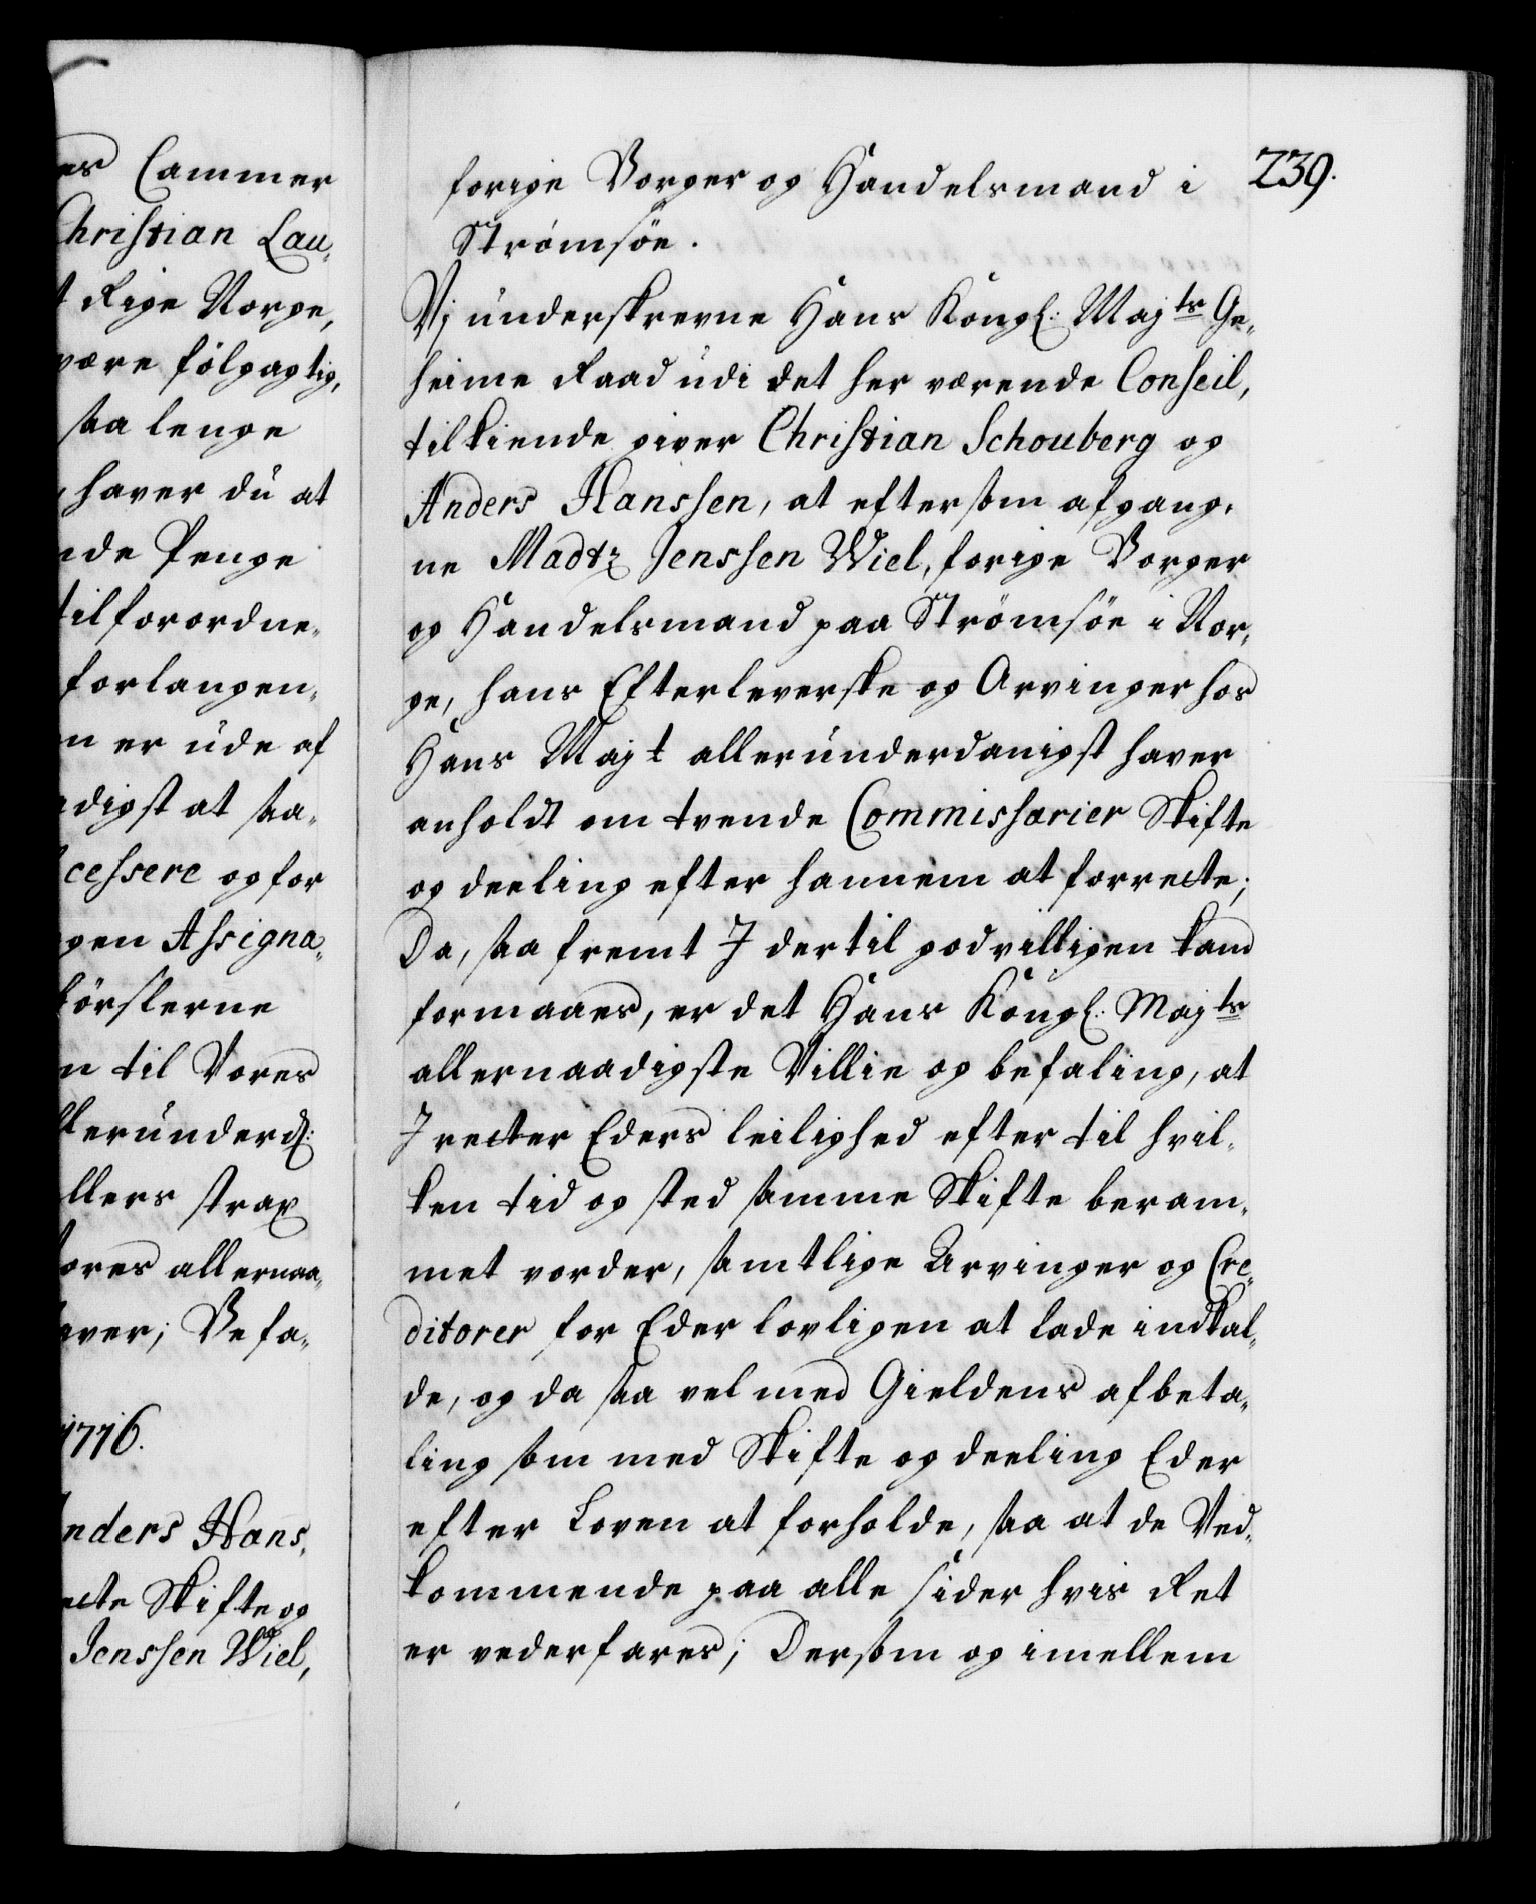 es Cammer
Christian Lau-
t Rige Norge,
være følgagtig,
saa lenge
haver du at
nde Penge
tilforordne-
forlangen-
n er ude af
adigst at saa-
cessere og for
gen Assigna-
kørslerne
n til Vores
llerunderd:
llers strax
Vores allernaa-
aver; Befa-
1716.
Anders Hans-
ette Skifte og
Jenssen Wiel,
239.
forige Borger og Handelsmand i
Strømsöe.
Vj underskrevne Hans Kongl: Majts Ge-
heime Raad udi det her værende Conseil,
tilkiende giver Christian Schouberg og
Anders Hanssen, at eftersom afgang-
ne Madtz Jenssen Wiel, forige Borger
og Handelsmand paa Strömsöe i Nor-
ge, hans Efterleverske og Arvinger hos
Hans Majt allerunderdanigst haver
anholdt om tvende Commissarier Skifte
og deeling efter hannem at forrette;
Da, saa fremt J dertil godvilligen kand
formaaes, er det Hans Kongl: Majts
allernaadigste Villie og befaling, at
J retter Eders leilighed efter til hvil-
ken tid og sted samme Skifte beram-
met vorder, samtlige Arvinger og Cre-
ditorer for Eder lovligen at lade indkal-
de, og da saa vel med Gieldens afbeta-
ling som med Skifte og deeling Eder
efter Loven at forholde, saa at de Ved-
kommende paa alle sider hvis Ret
er vederfares; Dersom og imellem